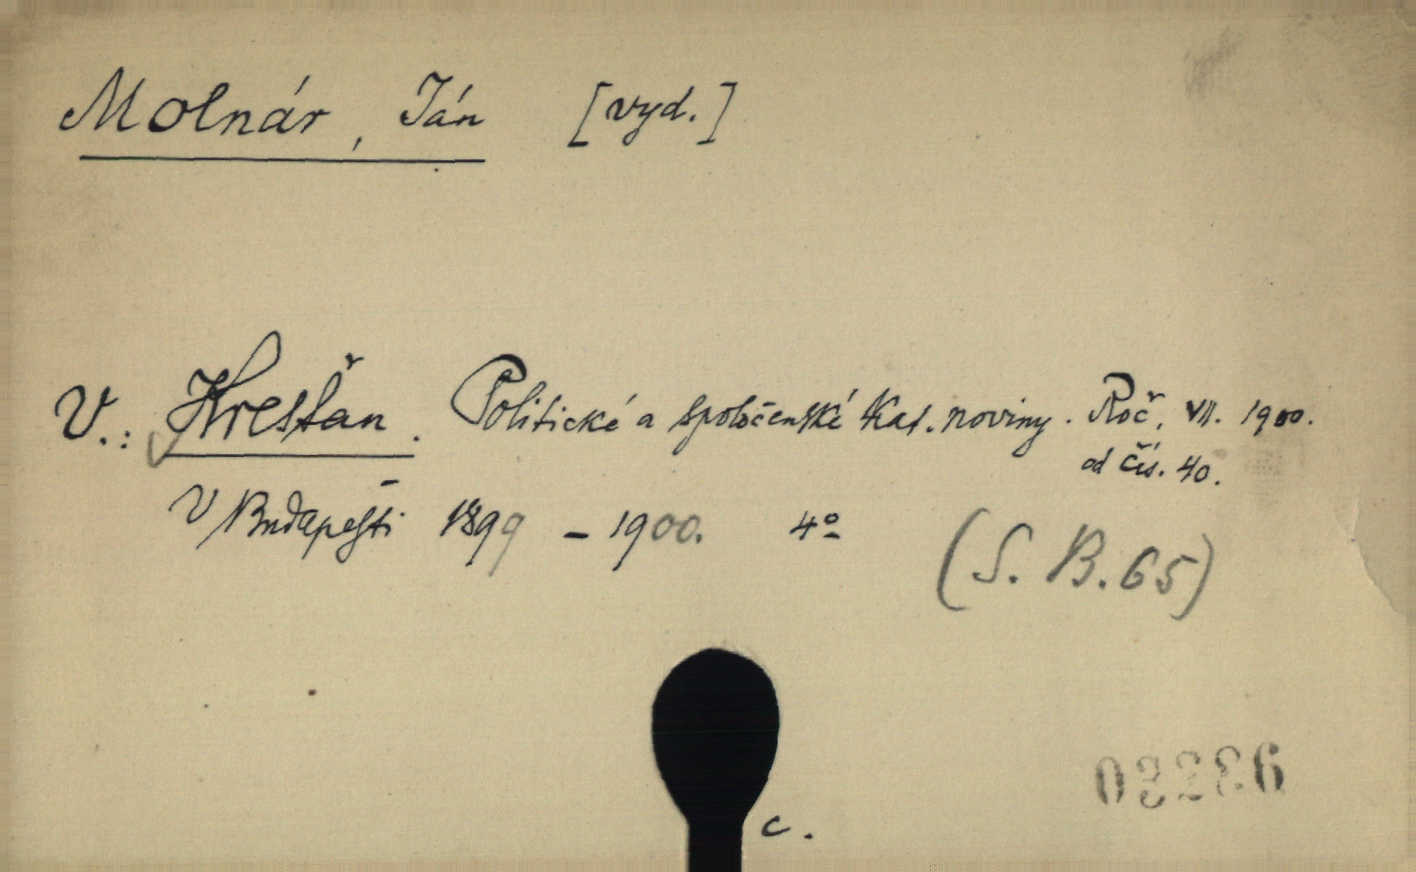 Molnár, Ján [vyd.]
V.: Kresťan. Politické a spoločenské kat. noviny. Roč. VII. 1900.
od čís. 40.
V Budapešti 1899 – 1900. 4º
(S. B. 65)
c.